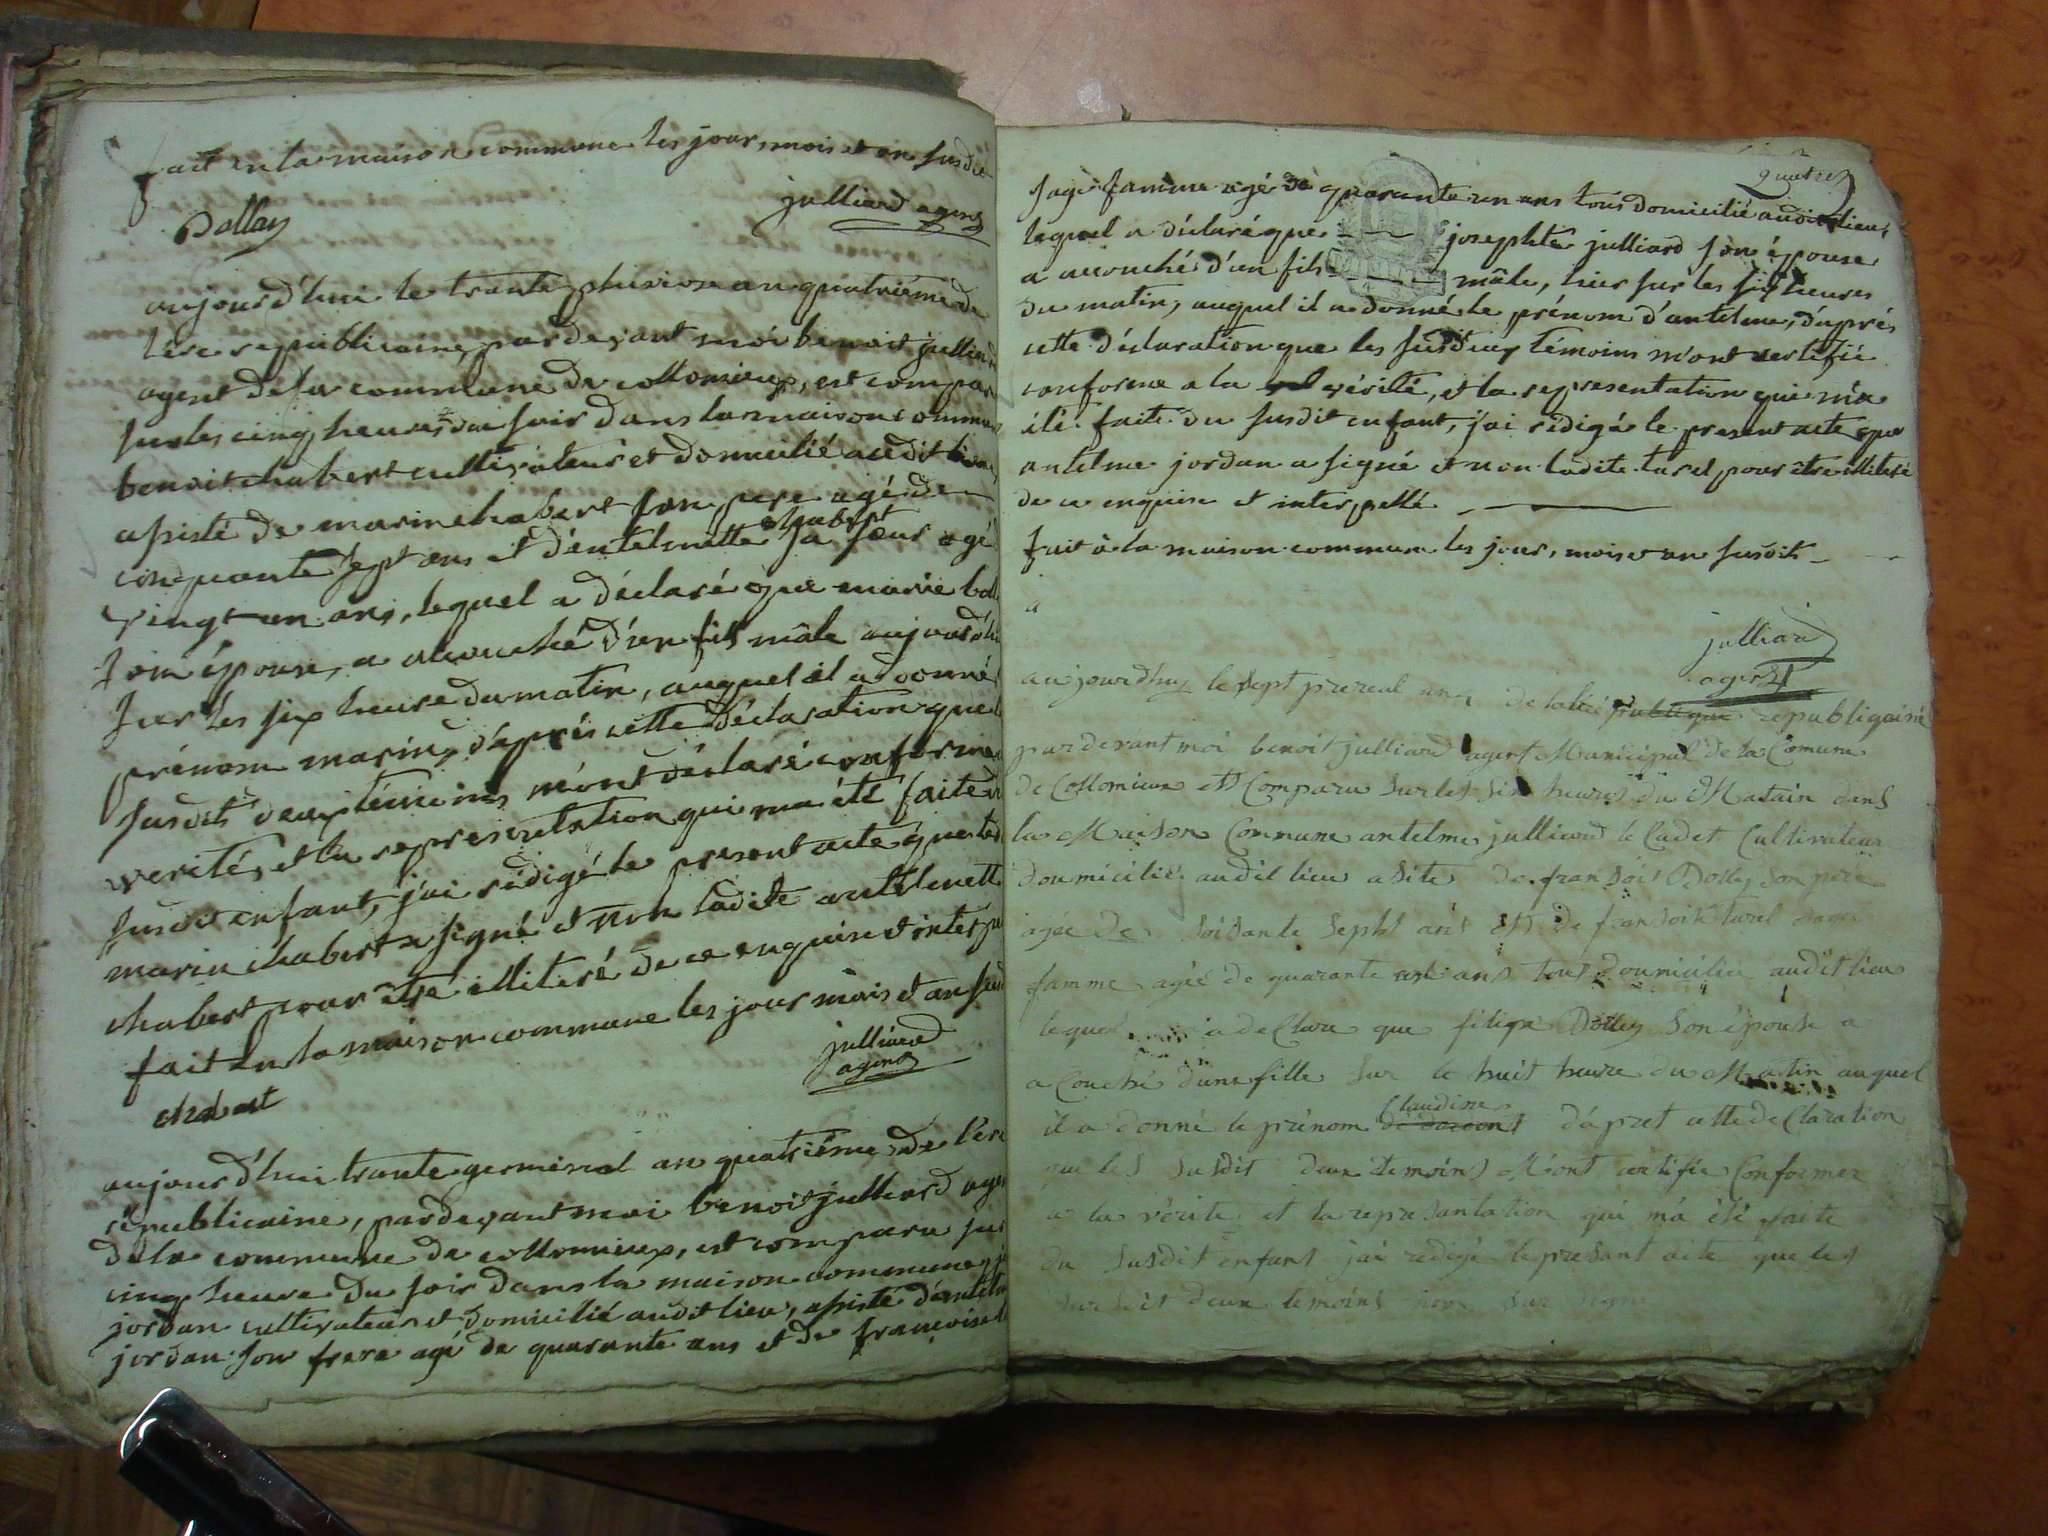 fait en la maison commune les jour, mois et an susdit
Dollay
julliard agent
aujourd'hui le trante pluviose an quatriéme de
l'ére republicaine, pardevant moi benoit julliard
agent de la commune de collomieux, est comparu
sur les cinq heures du soir dans la maison commune
benoit chabert cultivateur et domicilié audit lieu,
assisté de marin chabert son pere agé de
cinquante sept ans et d'antelmette chabert sa sœur agé
vingt un ans, lequel a déclaré que marie
son épouse, a accouché d'un fils mâle aujourd'hui
sur les six heure du matin, auquel il a donné
prénom marin, d'aprés cette déclaration que
susdits deux témoins m'ont déclaré conforme
verité, et la representation qui ma été faite
susdit enfant, j'ai rédigé le present acte que
marin chabert a signé et non ladite antelmette
chabert pour être illiteré de ce enquise et interpellé
fait en la maison commune les jour mois et an susdit
julliard
agent
chabert
aujourd'hui trante germinal an quatriéme de l'ére
républicaine, pardevant moi benoit julliard agent
de la commune de collomieux, est comparu sur
cinq heure du soir dans la maison commune
jordan cultivateur et domicilié audit lieu, assisté d'antelme
jordan son frere agé de quarante ans et de françoise
quatre
sage famme agé de quarante un ans tous domicilié audit lieu,
lequel a déclaré que josephte julliard son épouse
a accouché d'un fils mâle, hier sur les six heures
du matin, auquel il a donné le prénom d'antelme, d'aprés
cette déclaration que les susdeux témoins m'ont certifié
conforme a la verité, et la representation qui m'a
été faite du susdit enfant, j'ai rédigé le present acte que
antelme jordan a signé et non ladite turel pour être illiteré
de ce enquise et interpellé
fait à la maison commune les jour, mois et an susdits
a
julliard
agent
aujourdhuy le sept prereal an 4 de lalié publique republigaine
pardevant moi benoit julliard agent Municipal de la Comune
de Collomieux et Comparu sur les six heures du Matain dans
la Maison Commune antelme julliard le Cadet Cultivateur
doumicilié audit lieu asite de fransois Dolley son père
agée de soisante sept ans et de fransoise turel sage
famme agée de quarante un ans tous doumicilié audit lieu
lequel a declara que filipe Dolley son épouse a
a Couché d'une fille sur le huit heure du Matin auquel
il a donné le prénom Claudine d'apret cette de Claration
que les susdit deux temoins M'ont certifié Conformer
a la vérité et la represantation qui m'a été faite
du susdit enfant jai redigé le presant acte que les
sur dit deux temoins